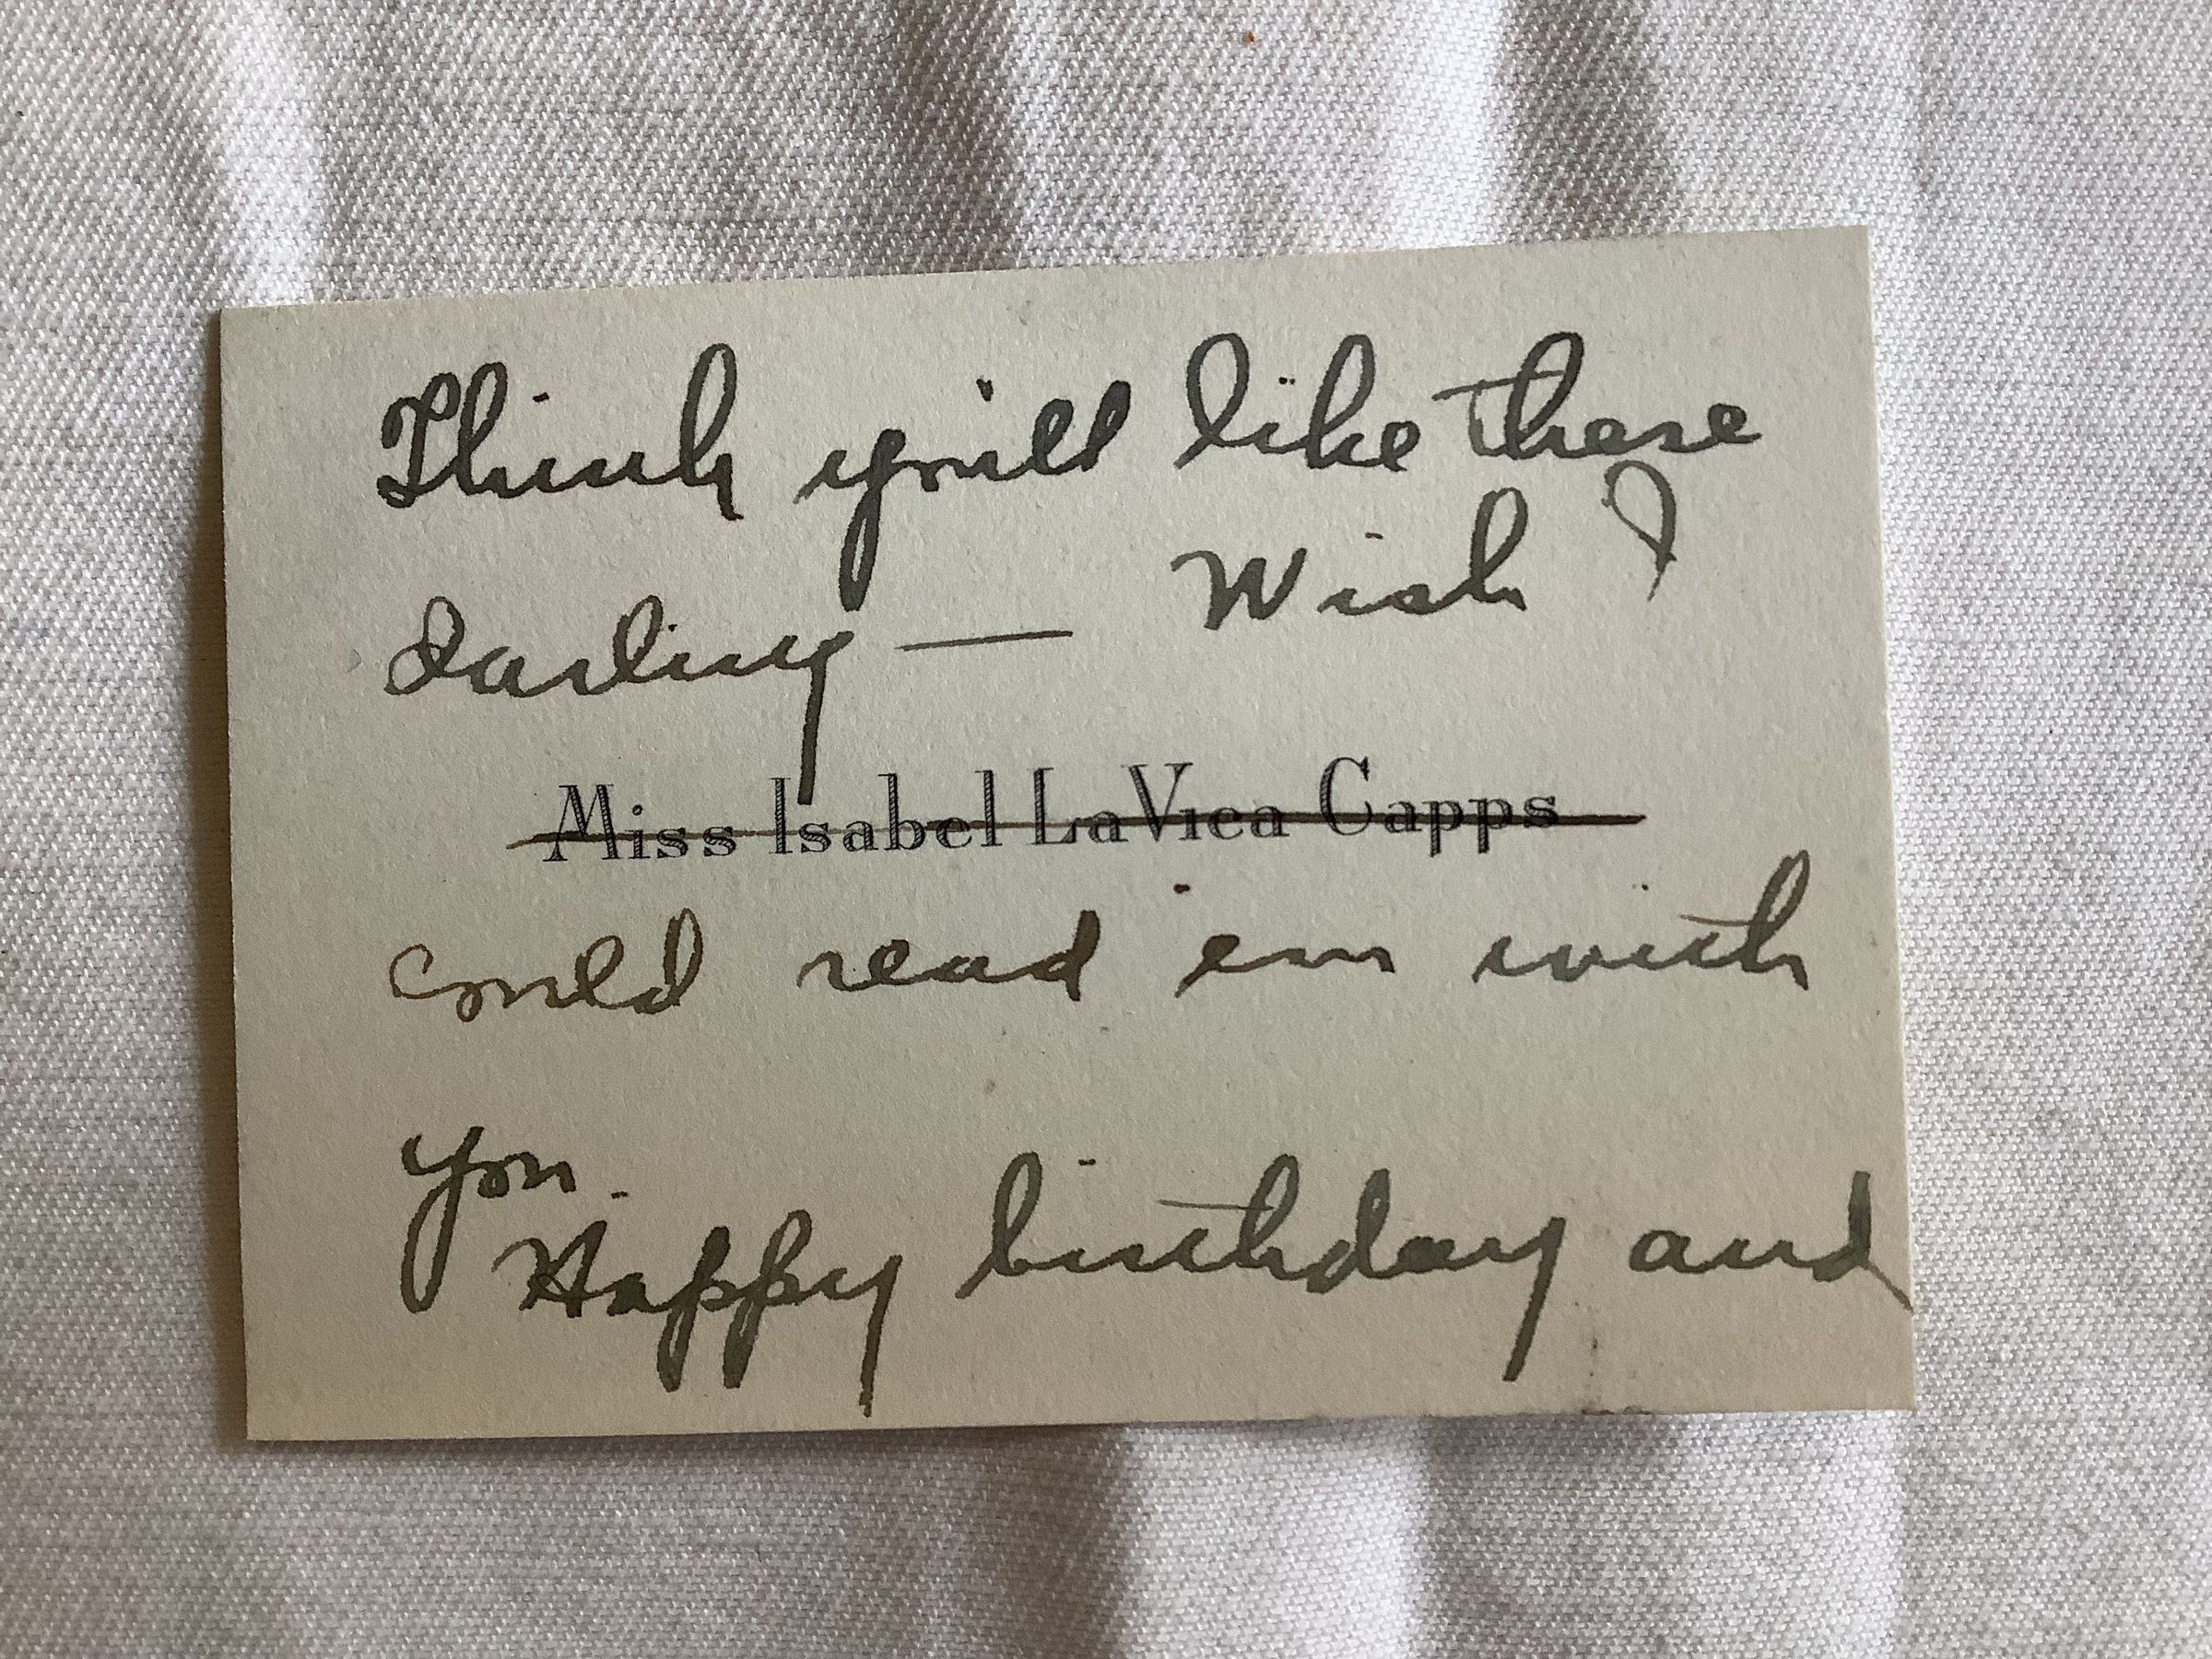 Think you'll like these
darling — Wish I
Miss Isabel LaVica Capps
could read 'em with
you.
Happy birthday and